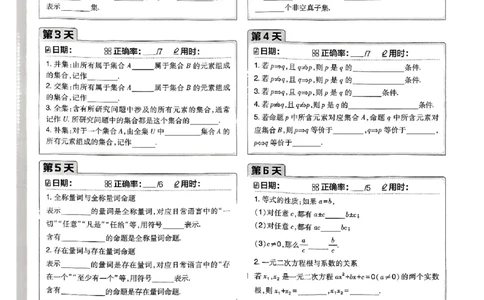 表示______集.
______个非空真子集.
第3天
日期: 正确率:__/7 用时:
1.并集:由所有属于集合A______属于集合B的元素组成
的集合,记作______.
2.交集:由所有属于集合A______属于集合B的元素组成
的集合,记作______.
3.全集:含有所研究问题中涉及的所有元素的集合,通常
记作U.所研究问题中的集合都是这个集合的______.
4.补集:对于一个集合A,由全集U中______集合A的
所有元素组成的集合,记作______.
第4天
日期: 正确率:__/7 用时:
1.若p⇒q,且q⇏p,则p是q的______条件.
2.若p⇏q,且q⇒p,则p是q的______条件.
3.若p⇒q,且q⇒p,则p是q的______条件.
4.若p⇏q,且q⇏p,则p是q的______条件.
5.若命题p中所含元素对应集合A,命题q中所含元素对
应集合B,则p⇒q等价于______,q⇒p等价于______,
p⇔q等价于______.
第5天
日期: 正确率:__/6 用时:
1.全称量词与全称量词命题
表示______的量词是全称量词,对应日常语言中的“一
切”“任意”“凡是”“任给”等,用符号______表示.
含有______的命题是全称量词命题.
2.存在量词与存在量词命题
表示______的量词是存在量词,对应日常语言中的“存
在一个”“至少有一个”等,用符号______表示.
含有______的命题是存在量词命题.
第6天
日期: 正确率:__/5 用时:
1.等式的性质:如果a=b,
(1)对任意c,都有a±c______b±c;
(2)对任意c,都有ac______bc;
(3)c≠0,那么a/c______b/c.
2.一元二次方程根与系数的关系
若x₁,x₂是一元二次方程ax²+bx+c=0(a≠0)的两个实数
根,则x₁+x₂=______,x₁x₂=______.